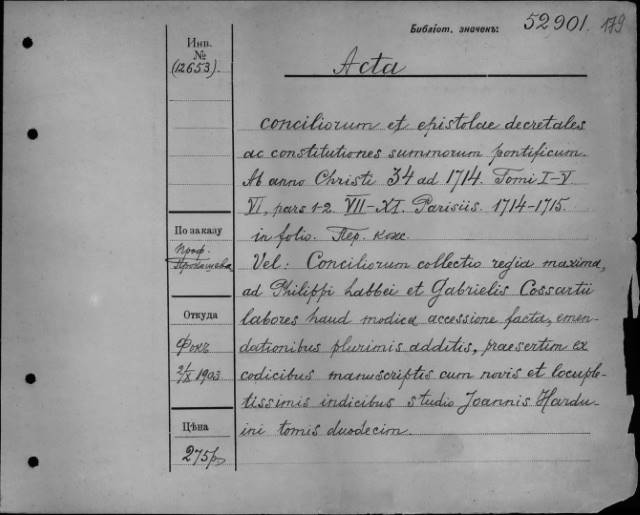 Библіот. значекъ: 52901. 179
Инв.
№
(12653).
Acta
conciliorum et epistolae decretales
ac constitutiones summorum pontificum.
Ab anno Christi 34 ad 1714. Tomi I-V
VI, pars 1-2. VII-XI. Parisiis. 1714-1715.
in folio. Пер. кож.
Vel: Conciliorum collectio regia maxima,
ad Philippi Labbei et Gabrielis Cossartii
labores haud modica accessione facta, emen-
dationibus plurimis additis, praesertim ex
codicibus manuscriptis cum novis et locuple-
tissimis indicibus studio Joannis Hardu-
ini tomis duodecim.
По заказу
Проф.
Откуда
Фокъ
1903
Цѣна
275 р.